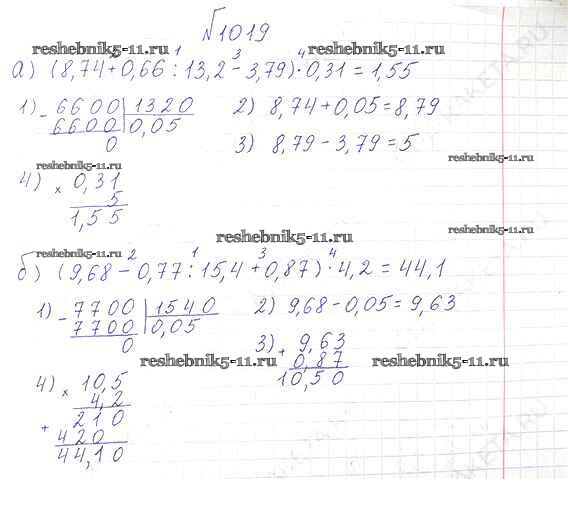 №1019
reshebnik5-11.ru reshebnik5-11.ru
а) (8,74 + 0,66 : 13,2 - 3,79) · 0,31 = 1,55
2 1 3 4
1) - 6600 | 1320
6600 | 0,05
0
2) 8,74 + 0,05 = 8,79
3) 8,79 - 3,79 = 5
reshebnik5-11.ru
reshebnik5-11.ru
4) × 0,31
5
1,55
reshebnik5-11.ru
reshebnik5-11.ru
reshebnik5-11.ru
2 1 3 4
б) (9,68 - 0,77 : 15,4 + 0,87) · 4,2 = 44,1
1) - 7700 | 1540
7700 | 0,05
0
2) 9,68 - 0,05 = 9,63
3) + 9,63
0,87
10,50
reshebnik5-11.ru
reshebnik5-11.ru
4) × 10,5
4,2
+ 210
420
44,10